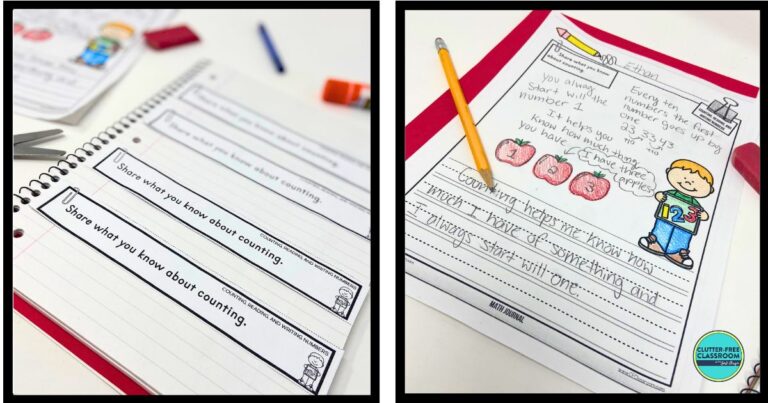 Share what you know about counting.
Share what you know about counting.
Share what you know about counting.
COUNTING, READING, AND WRITING NUMBERS
Share what you know about counting.
COUNTING, READING, AND WRITING NUMBERS
Ethan
Share what you know
about counting.
you always
Start will the
number 1
It helps you
know how much
you have
thing
Every ten
numbers the first
number goes up by
one
23 33 43
+10 +10
I have three
apples
1 2 3
1 2 3
Counting helps me know how
much I have of something and
I always start will one.
MATH JOURNAL
CLUTTER-FREE
CLASSROOM